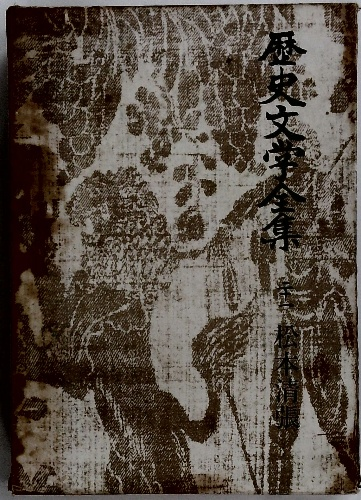 歴史文学全集
二十二 松本清張